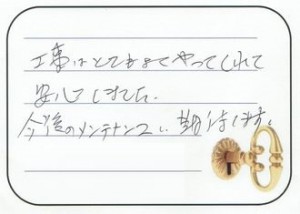 工事はとてもよくやってくれて
安心しました。
今後のメンテナンスに期待します。